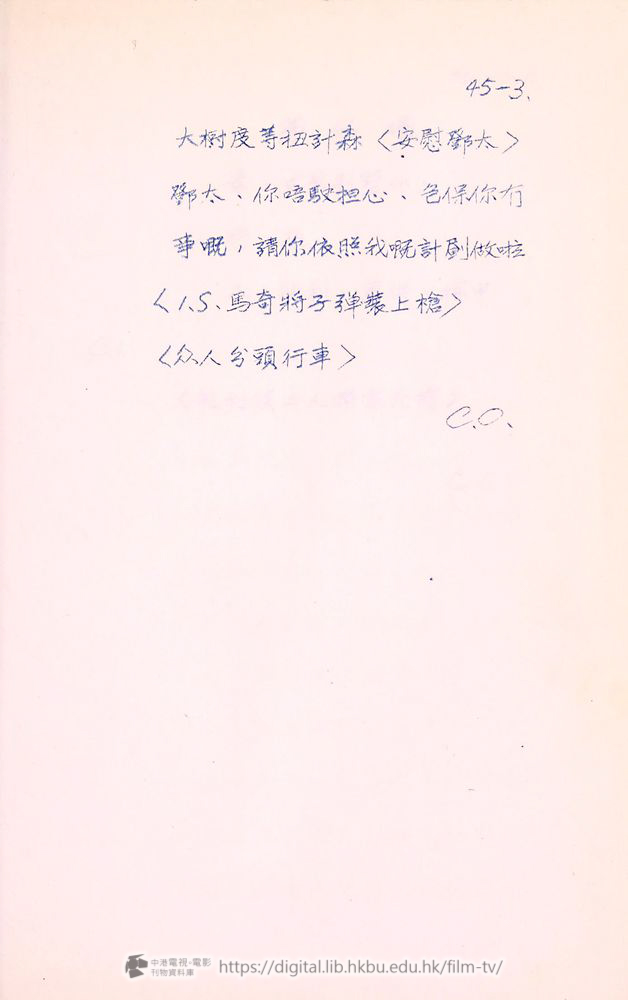 45-3.
大樹度等扭計森〈安慰鄧太〉
鄧太、你唔駛担心、包保你冇
事嘅，請你依照我嘅計劃做啦
〈I.S.馬奇將子弹裝上槍〉
〈众人分頭行車〉
C.O.
中港電視·電影
刊物資料庫
https://digital.lib.hkbu.edu.hk/film-tv/